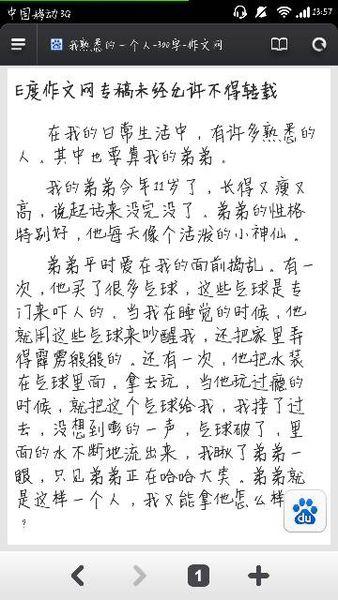 中国移动3G 13:57
我熟悉的一个人-300字-作文网
E度作文网专稿未经允许不得转载
在我的日常生活中，有许多熟悉的
人。其中也要算我的弟弟。
我的弟弟今年11岁了，长得又瘦又
高，说起话来没完没了。弟弟的性格
特别好，他每天像个活泼的小神仙。
弟弟平时爱在我的面前捣乱。有一
次，他买了很多气球，这些气球是专
门来吓人的。当我在睡觉的时候，他
就用这些气球来吵醒我，还把家里弄
得霹雳般般的。还有一次，他把水装
在气球里面，拿去玩，当他玩过瘾的
时候，就把这个气球给我，我接了过
去，没想到嘭的一声，气球破了，里
面的水不断地流出来，我瞅了弟弟一
眼，只见弟弟正在哈哈大笑。弟弟就
是这样一个人，我又能拿他怎么样
？
du
1